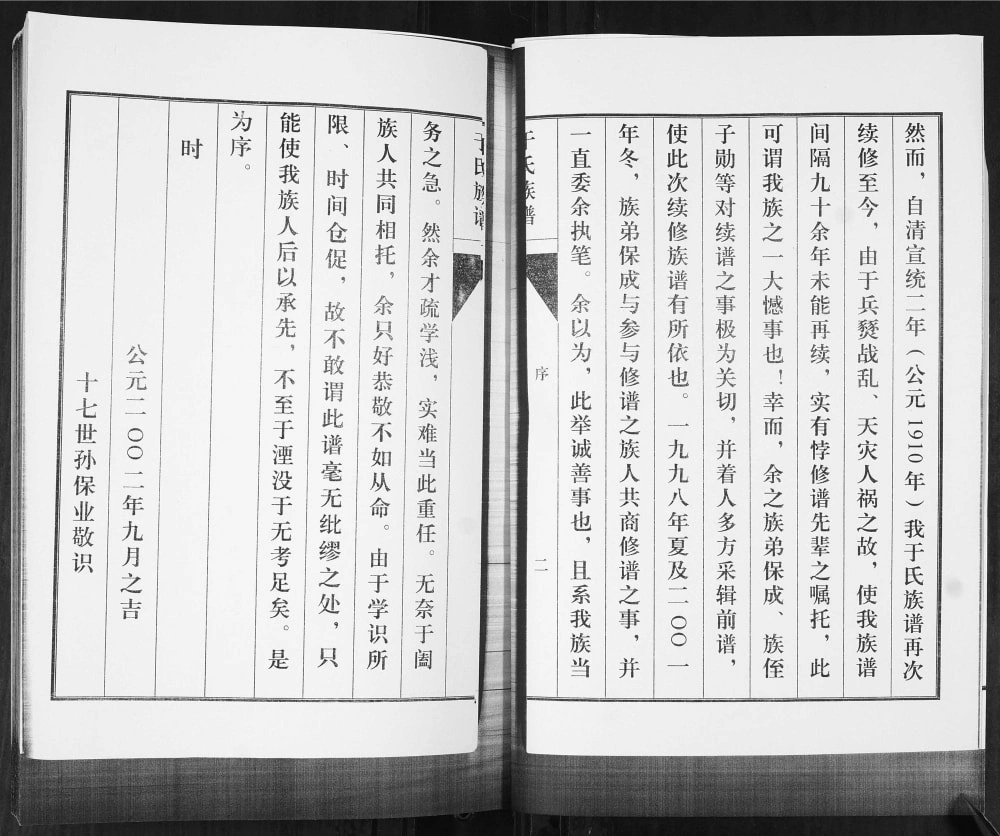 然而，自清宣统二年（公元1910年）我于氏族谱再次
续修至今，由于兵燹战乱、天灾人祸之故，使我族谱
间隔九十余年未能再续，实有悖修谱先辈之嘱托，此
可谓我族之一大憾事也！幸而，余之族弟保成、族侄
子勋等对续谱之事极为关切，并着人多方采辑前谱，
使此次续修族谱有所依也。一九九八年夏及二〇〇一
年冬，族弟保成与参与修谱之族人共商修谱之事，并
一直委余执笔。余以为，此举诚善事也，且系我族当
于氏族谱
序
二
于氏族谱
务之急。然余才疏学浅，实难当此重任。无奈于阖
族人共同相托，余只好恭敬不如从命。由于学识所
限、时间仓促，故不敢谓此谱毫无纰缪之处，只
能使我族人后以承先，不至于湮没于无考足矣。是
为序。
时
公元二〇〇二年九月之吉
十七世孙保业敬识